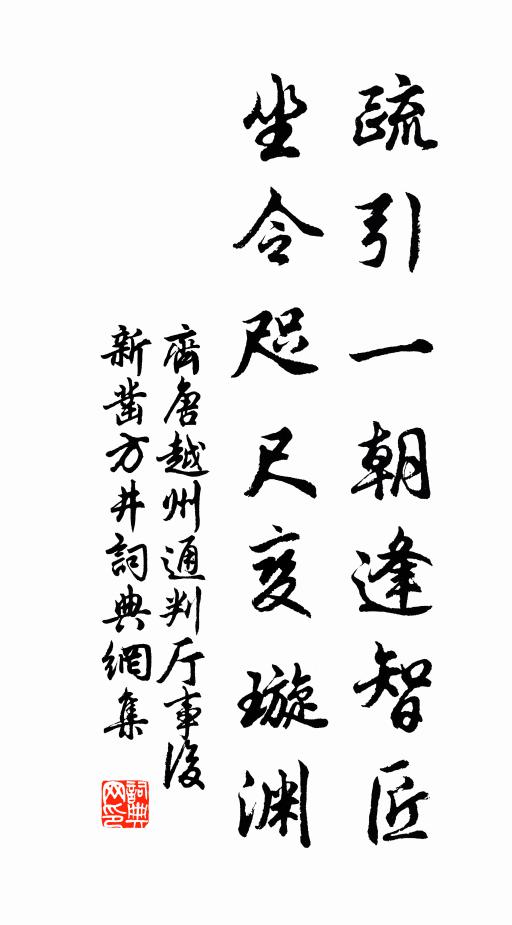 疏引一朝逢智匠
坐令咫尺变璇渊
齊唐越州通判厅事後
新凿方井詞典網集
詞典网印